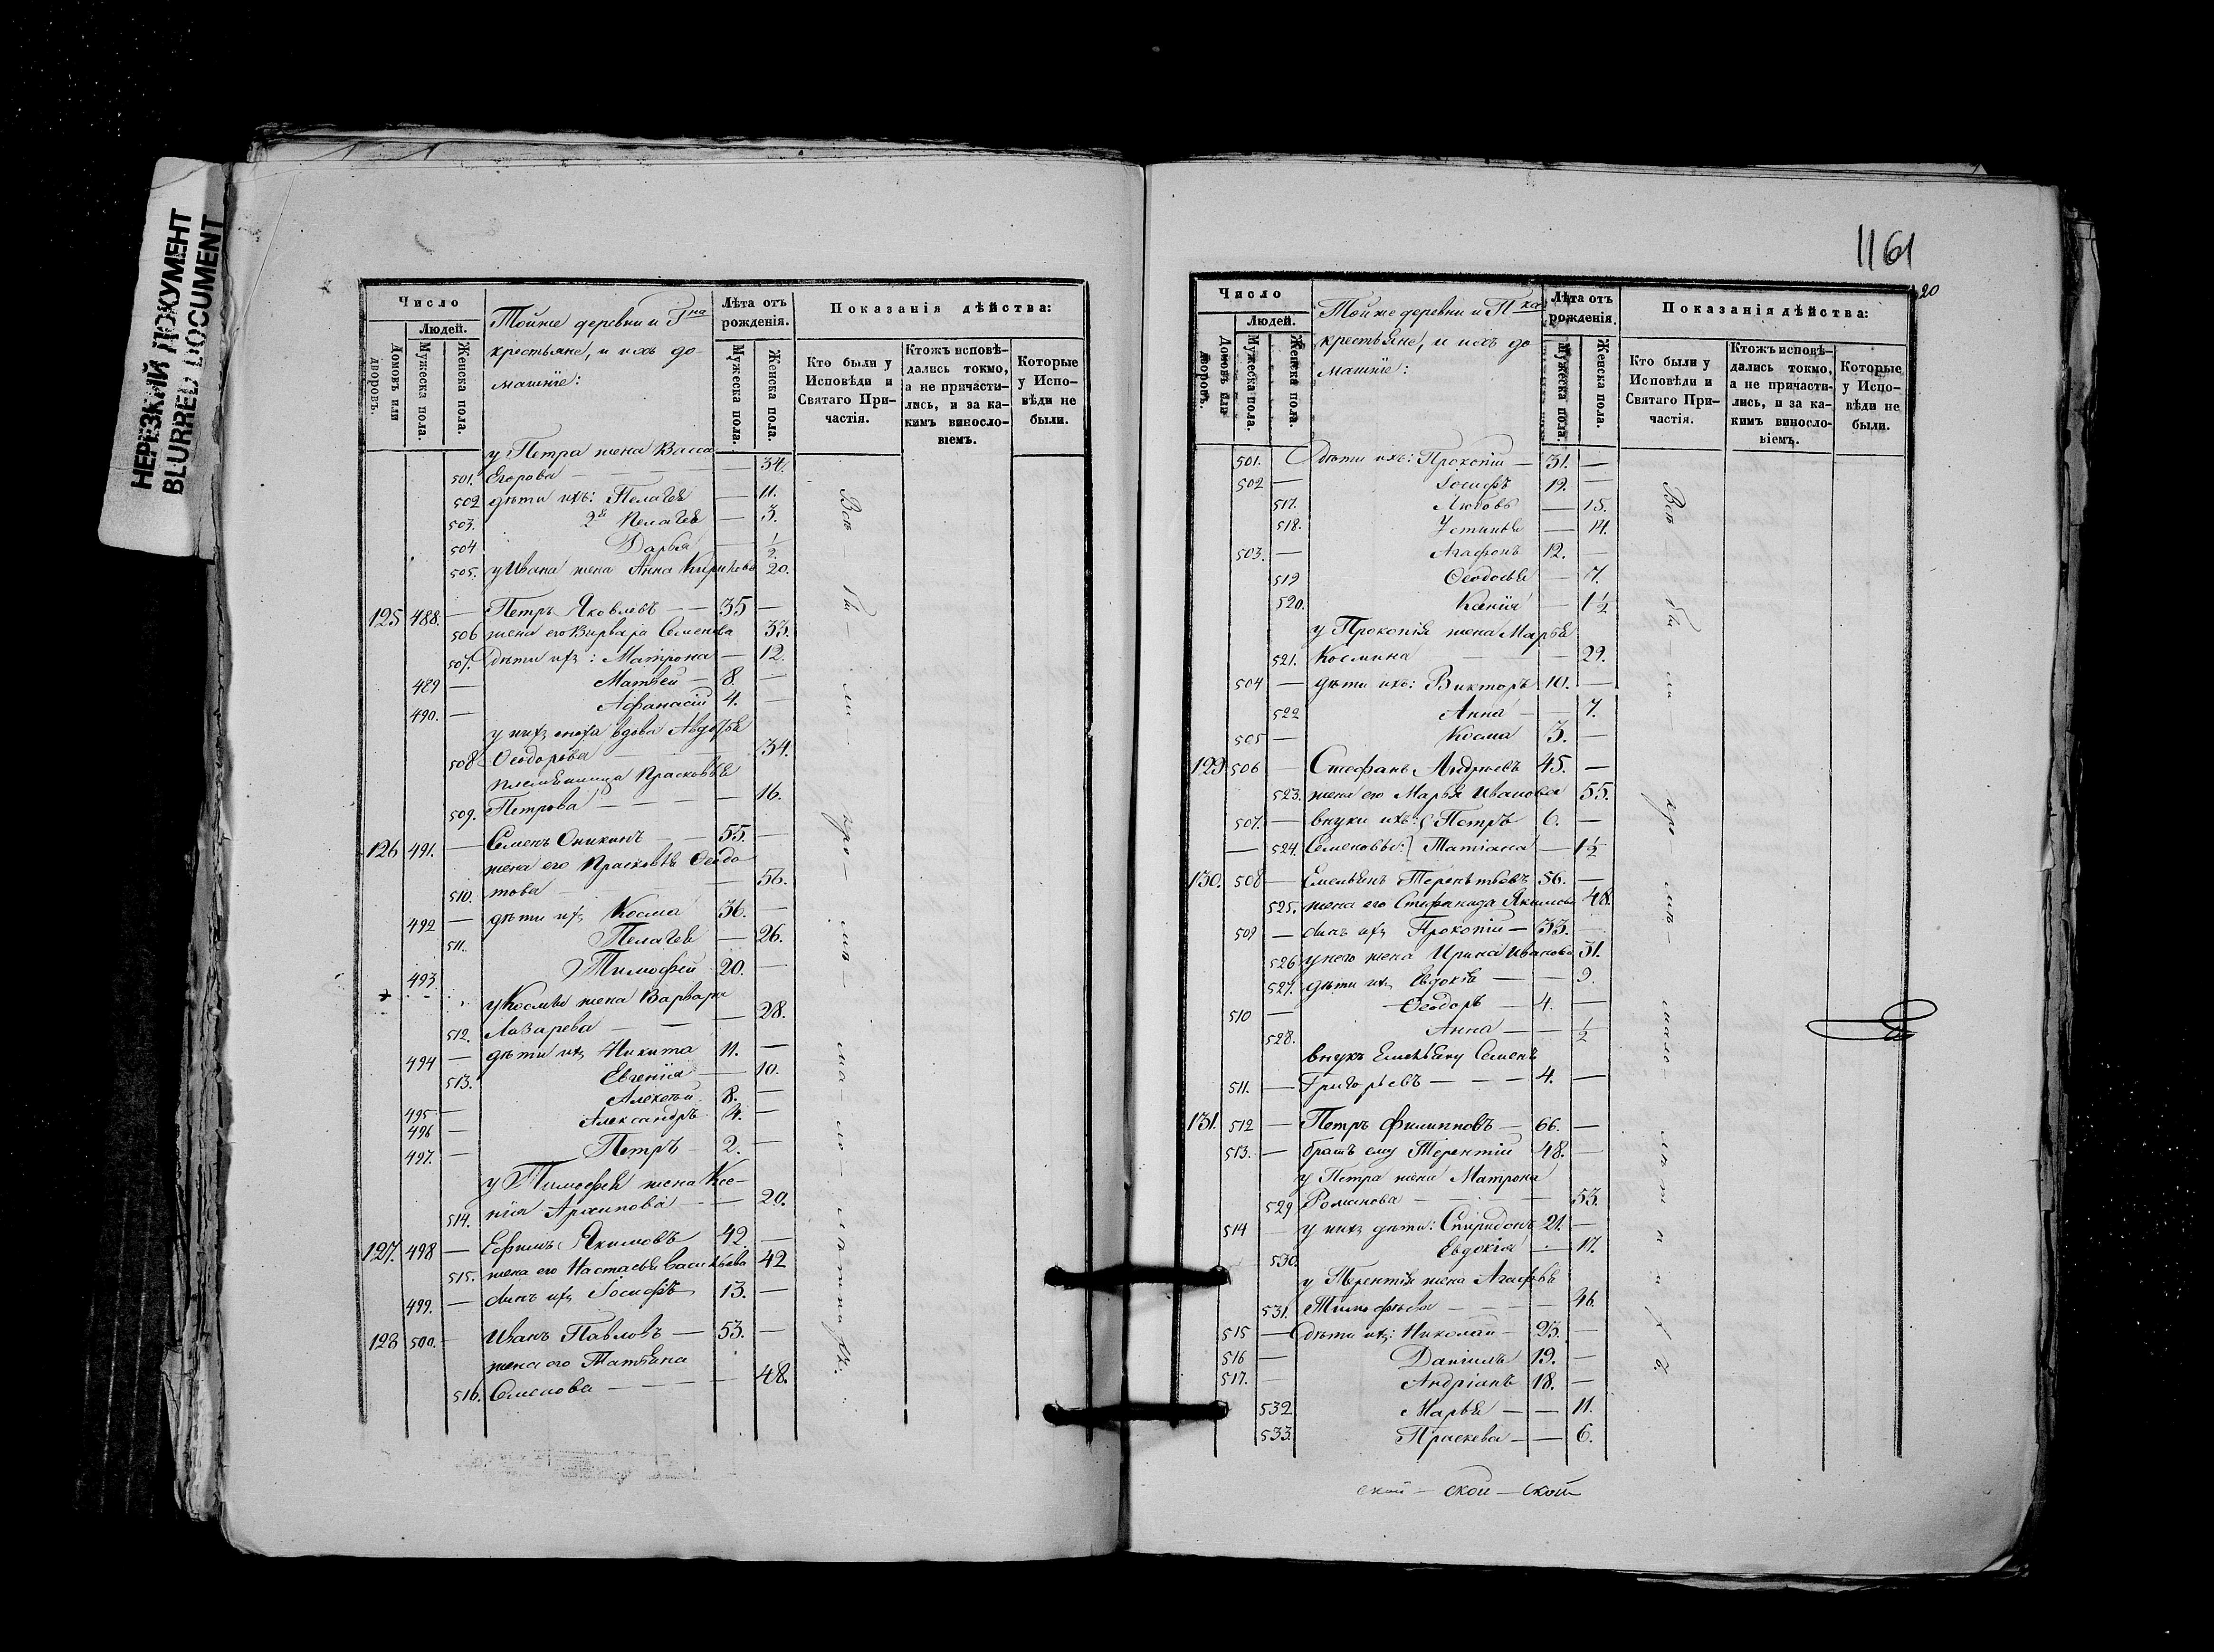 НЕРЕЗКИЙ ДОКУМЕНТ
BLURRED DOCUMENT
Число
Людей.
Домовъ или дворовъ.
Мужеска пола.
Женска пола.
Тойже деревни и Гна
крестьяне, и ихъ до-
машніе:
Лѣта отъ рожденія.
Мужеска пола.
Женска пола.
Показанія дѣйства:
Кто были у Исповѣди и Святаго Причастія.
Ктожъ исповѣ-
дались токмо,
а не причасти-
лись, и за ка-
кимъ винosло-
віемъ.
Которые
у Испо-
вѣди не
были.
у Петра жена Васса
501. Егорова — 34.
502 дѣти ихъ: Пелагея — 11.
503. 2я Пелагея — 3.
504. Дарья — 1/2
505. у Ивана жена Анна Кирикова 20.
125 488. — Петръ Яковлевъ — — 35 —
506 жена его Варвара Семенова 33.
507. дѣти ихъ: Матрона — 12.
489 — Матвей — 8. —
490. — Афанасій 4. —
у нихъ сноха вдова Авдотья
508 Ѳеодорова — 34.
племянница Прасковья
509. Петрова — — — — 16.
126 491. — Семенъ Оникинъ — — 55. —
жена его Прасковья Ѳедо
510. това — — 56.
492 — дѣти ихъ Косма 36. —
511. Пелагея — 26.
493. Тимофей 20. —
у Космы жена Варвара
512. Лазарева — — — 28.
494 — дѣти ихъ Никита 11. —
513. Евгенія — 10.
495 — Алексѣй 8. —
496 — Александръ 4. —
497. — Петръ 2. —
у Тимофея жена Ксе-
514. нія Архипова — — 20.
127. 498 — Ефимъ Якимовъ 42. —
515. жена его Настасья Васильева 42
499. — сынъ ихъ Іосифъ 13. —
128 500. — Иванъ Павловъ — 53. —
жена его Татьяна
516. Семенова — — — — 48.
Всѣ — бы — ли — кро — мѣ — ма — ло — лѣтнихъ.
1161
20
Число
Людей.
Домовъ или дворовъ.
Мужеска пола.
Женска пола.
Тойже деревни и Пка
крестьяне, и ихъ до
машніе:
Лѣта отъ рожденія.
Мужеска пола.
Женска пола.
Показанія дѣйства:
Кто были у Исповѣди и Святаго Причастія.
Ктожъ исповѣ-
дались токмо,
а не причасти-
лись, и за ка-
кимъ винosло-
віемъ.
Которые
у Испо-
вѣди не
были.
501. дѣти ихъ: Прокопій — 31. —
502 — Іосифъ 19. —
517. Любовь — 15.
518. Устинья — 14.
503. — Агафонъ 12. —
519 Ѳеодосья — 7.
520. Ксенія — 1 1/2
у Прокопія жена Марья
521. Космина — — 29.
504 — дѣти ихъ: Викторъ 10. —
522 Анна — — 7.
505 — Косма 3. —
129 506 — Стефанъ Андреевъ 45. —
523. жена его Марья Иванова 55.
507. — внуки ихъ: Петръ 6. —
— 524. Семеновы: Татіана — 1 1/2
130. 508 — Емельянъ Терентьевъ 56. —
525. жена его Стефанида Якимова 48.
509 — сынъ ихъ Прокопій — 33. —
526. у него жена Ирина Иванова 31.
527. дѣти ихъ Евдокія — — 9.
510 — Ѳеодоръ — 4. —
528. Анна — — 1/2
внукъ Емельяну Семенъ
511. — Григорьевъ — — — 4. —
131. 512 — Петръ Филипповъ — 66. —
513. — братъ ему Терентій 48. —
у Петра жена Матрона
529 Романова — — — — 53.
514 — у нихъ дѣти: Спиридонъ 21. —
530. Евдокія — 17.
у Терентія жена Агафья
531. Тимофѣева — — — — 46.
515 — дѣти ихъ: Николай — 25. —
516 — Даніилъ 19. —
517. — Андріанъ 18. —
532 Марья — — 11.
533. Праскева — — 6.
Всѣ — бы — ли — кро — мѣ — мало — лѣтнихъ.
ской — ской — ской